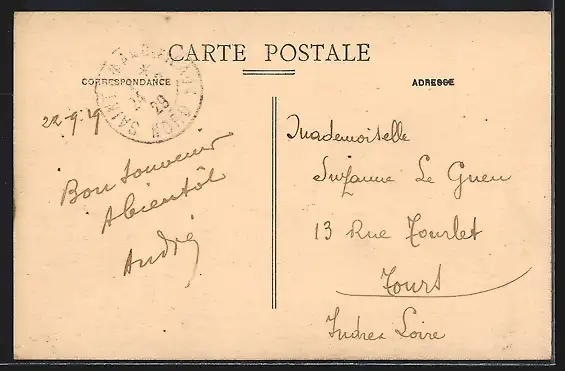 CARTE POSTALE
CORRESPONDANCE
ADRESSE
22-9-29
Bon Souvenir
A bientôt
André
Mademoiselle
Suzanne Le Guen
13 Rue Tourlet
Tours
Indre Loire